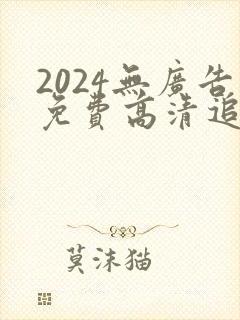 2024無廣告
免費高清追
莫沫猫